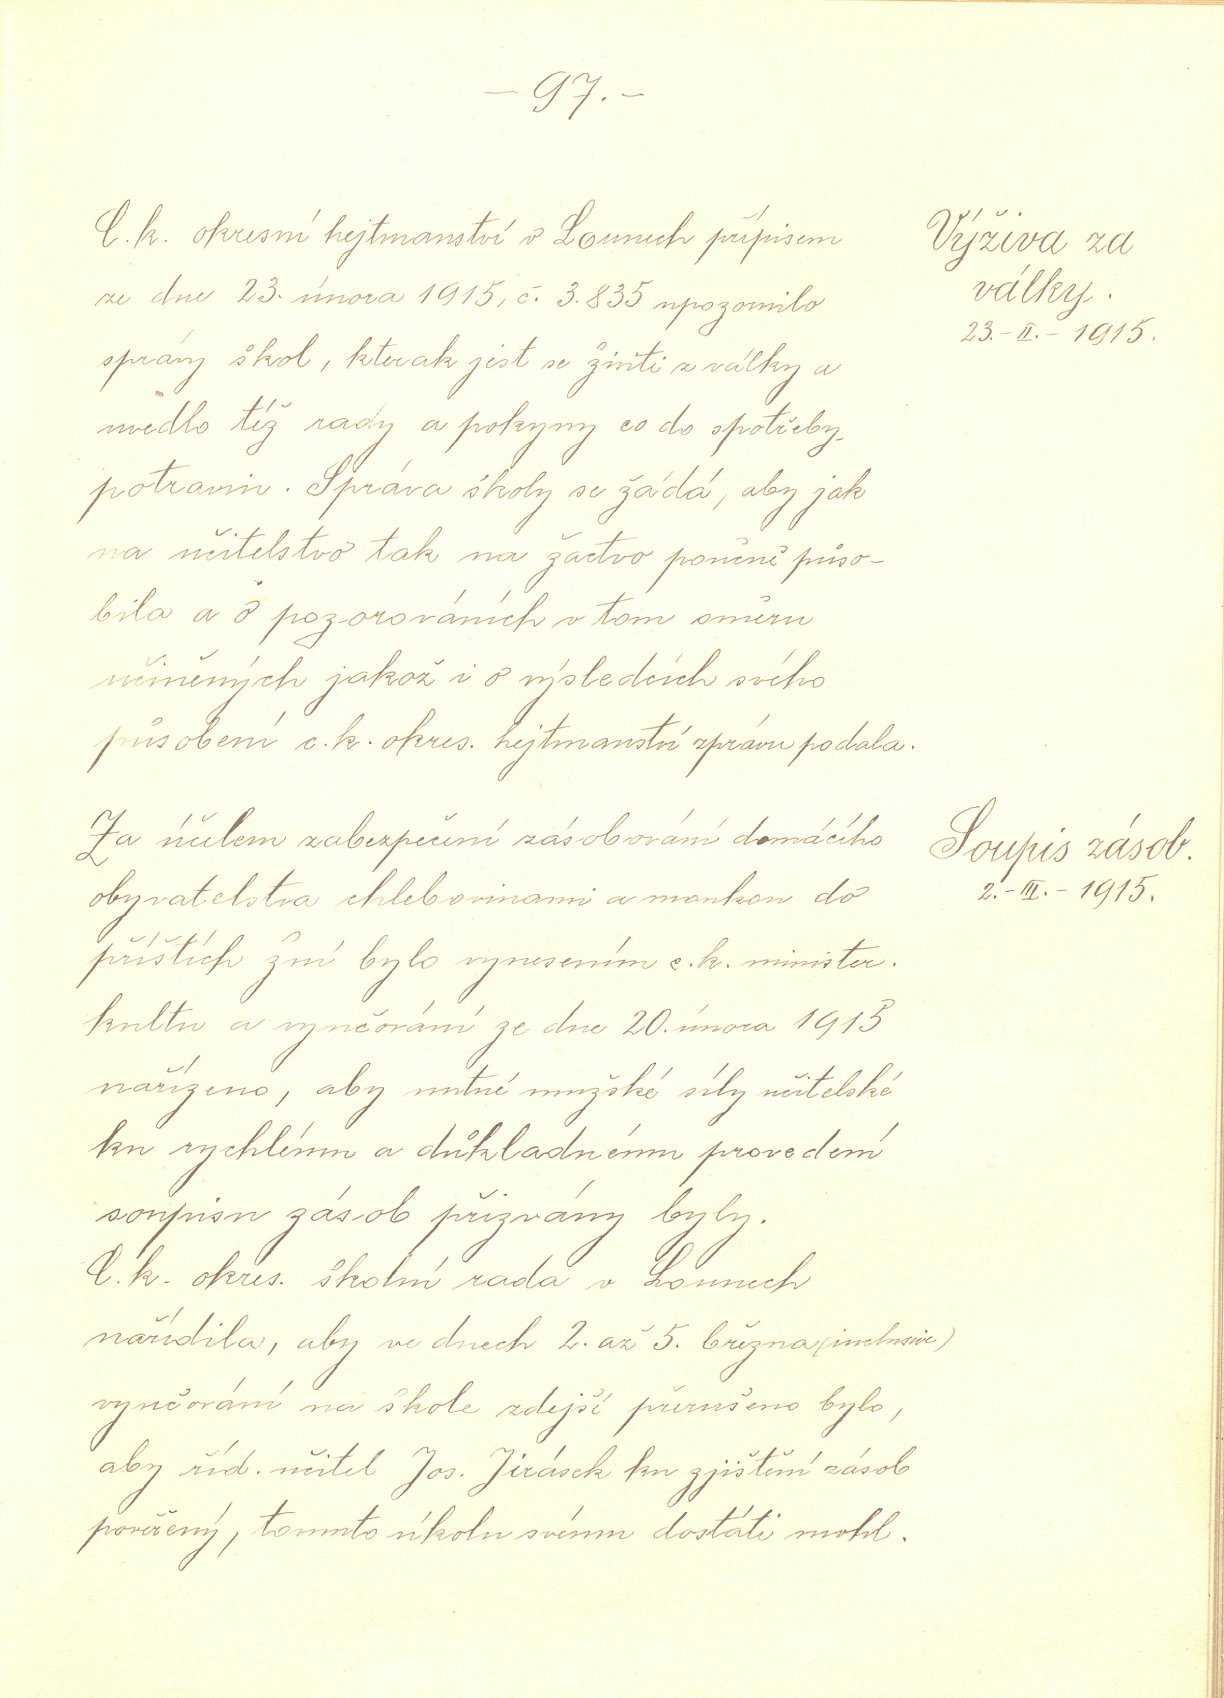 – 97. –
C. k. okresní hejtmanství v Lounech přípisem
ze dne 23. února 1915, č. 3.835 upozornilo
správy škol, kterak jest se živiti z války a
uvedlo též rady a pokyny co do spotřeby
potravin. Správa školy se žádá, aby jak
na učitelstvo tak na žactvo poučně půso-
bila a o pozorováních v tom směru
učiněných jakož i o výsledcích svého
působení c. k. okres. hejtmanství zprávu podala.
Výživa za
války.
23. – II. – 1915.
Za účelem zabezpečení zásobování domácího
obyvatelstva chlebovinami a moukou do
příštích žní bylo vynesením c. k. minister.
kultu a vyučování ze dne 20. února 1915
nařízeno, aby nutné mužské síly učitelské
ku rychlému a důkladnému provedení
soupisu zásob přizvány byly.
C. k. okres. školní rada v Lounech
nařídila, aby ve dnech 2. až 5. března (inclusive)
vyučování na škole zdejší přerušeno bylo,
aby říd. učitel Jos. Jirásek ku zjištění zásob
pověřený, tomuto úkolu svému dostáti mohl.
Soupis zásob.
2. – III. – 1915.